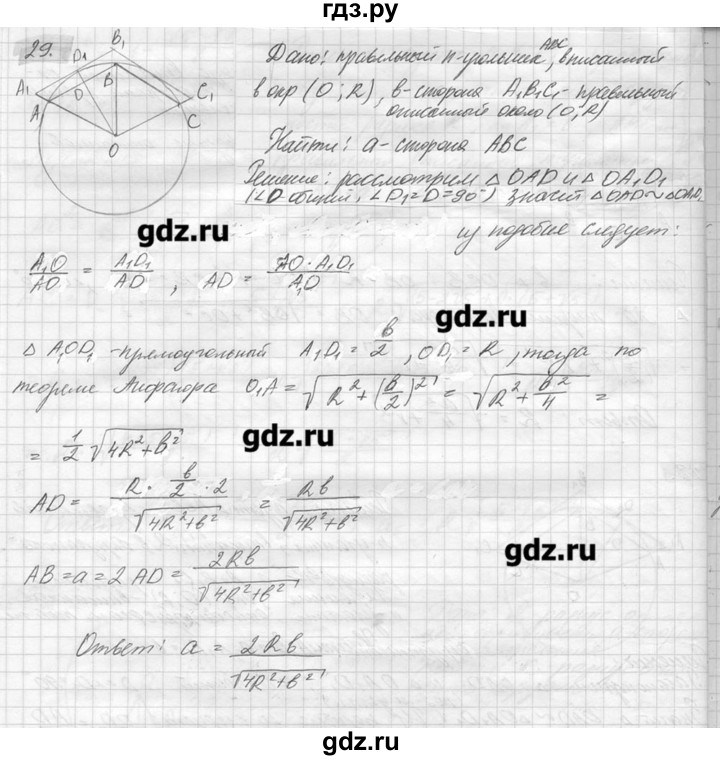 гдз.ру
29.
Дано: правильный n-угольник ABC, вписанный
в окр (O; R), в-сторона A₁B₁C₁ - правильный
описанной около (O, R)
Найти: a - сторона ABC
Решение: рассмотрим △OAD и △OA₁D₁
(∠O общий, ∠D₁=D=90°) значит △OAD~△OA₁D₁
из подобие следует:
D₁ B₁ A₁ A D B C₁ C O
gdz.ru
A₁O/AO = A₁D₁/AD, AD = AO·A₁D₁/A₁O
gdz.ru
△A₁OD₁ - прямоугольный A₁D₁ = в/2, OD₁ = R, тогда по
теореме Пифагора O₁A = √(R²+(в/2)²) = √(R²+в²/4) =
= 1/2 √(4R²+в²)
gdz.ru
AD = (R · в/2 · 2)/√(4R²+в²) = Rв/√(4R²+в²)
gdz.ru
AB = a = 2AD = 2Rв/√(4R²+в²)
Ответ: a = 2Rв/√(4R²+в²)
gdz.ru